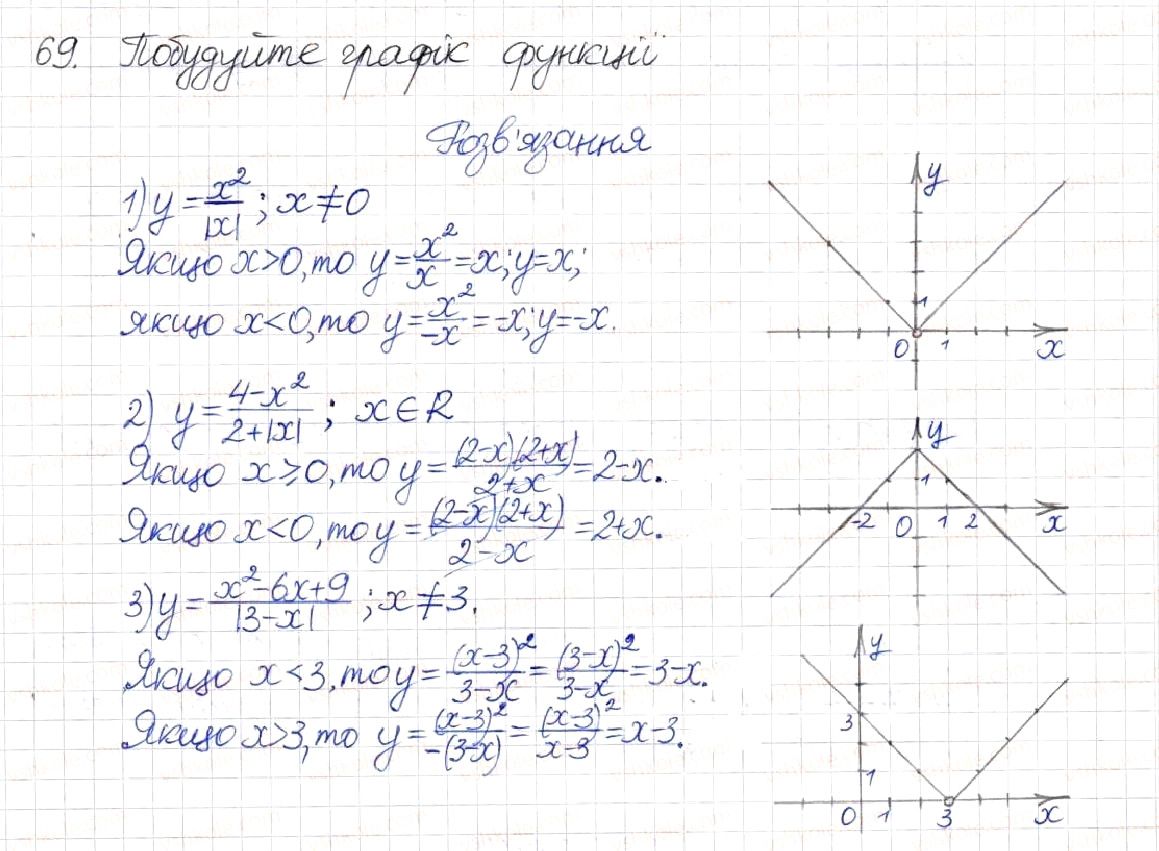 69. Побудуйте графік функції
Розв'язання
1) y = x²/|x| ; x ≠ 0
Якщо x>0, то y = x²/x = x; y = x;
якщо x<0, то y = x²/-x = -x; y = -x.
y
1
0 1 x
2) y = 4-x²/2+|x| ; x ∈ R
Якщо x ⩾ 0, то y = (2-x)(2+x)/2+x = 2-x.
Якщо x<0, то y = (2-x)(2+x)/2-x = 2+x.
y
1
-2 0 1 2 x
3) y = x²-6x+9/|3-x| ; x ≠ 3.
Якщо x<3, то y = (x-3)²/3-x = (3-x)²/3-x = 3-x.
Якщо x>3, то y = (x-3)²/-(3-x) = (x-3)²/x-3 = x-3.
y
3
1
0 1 3 x